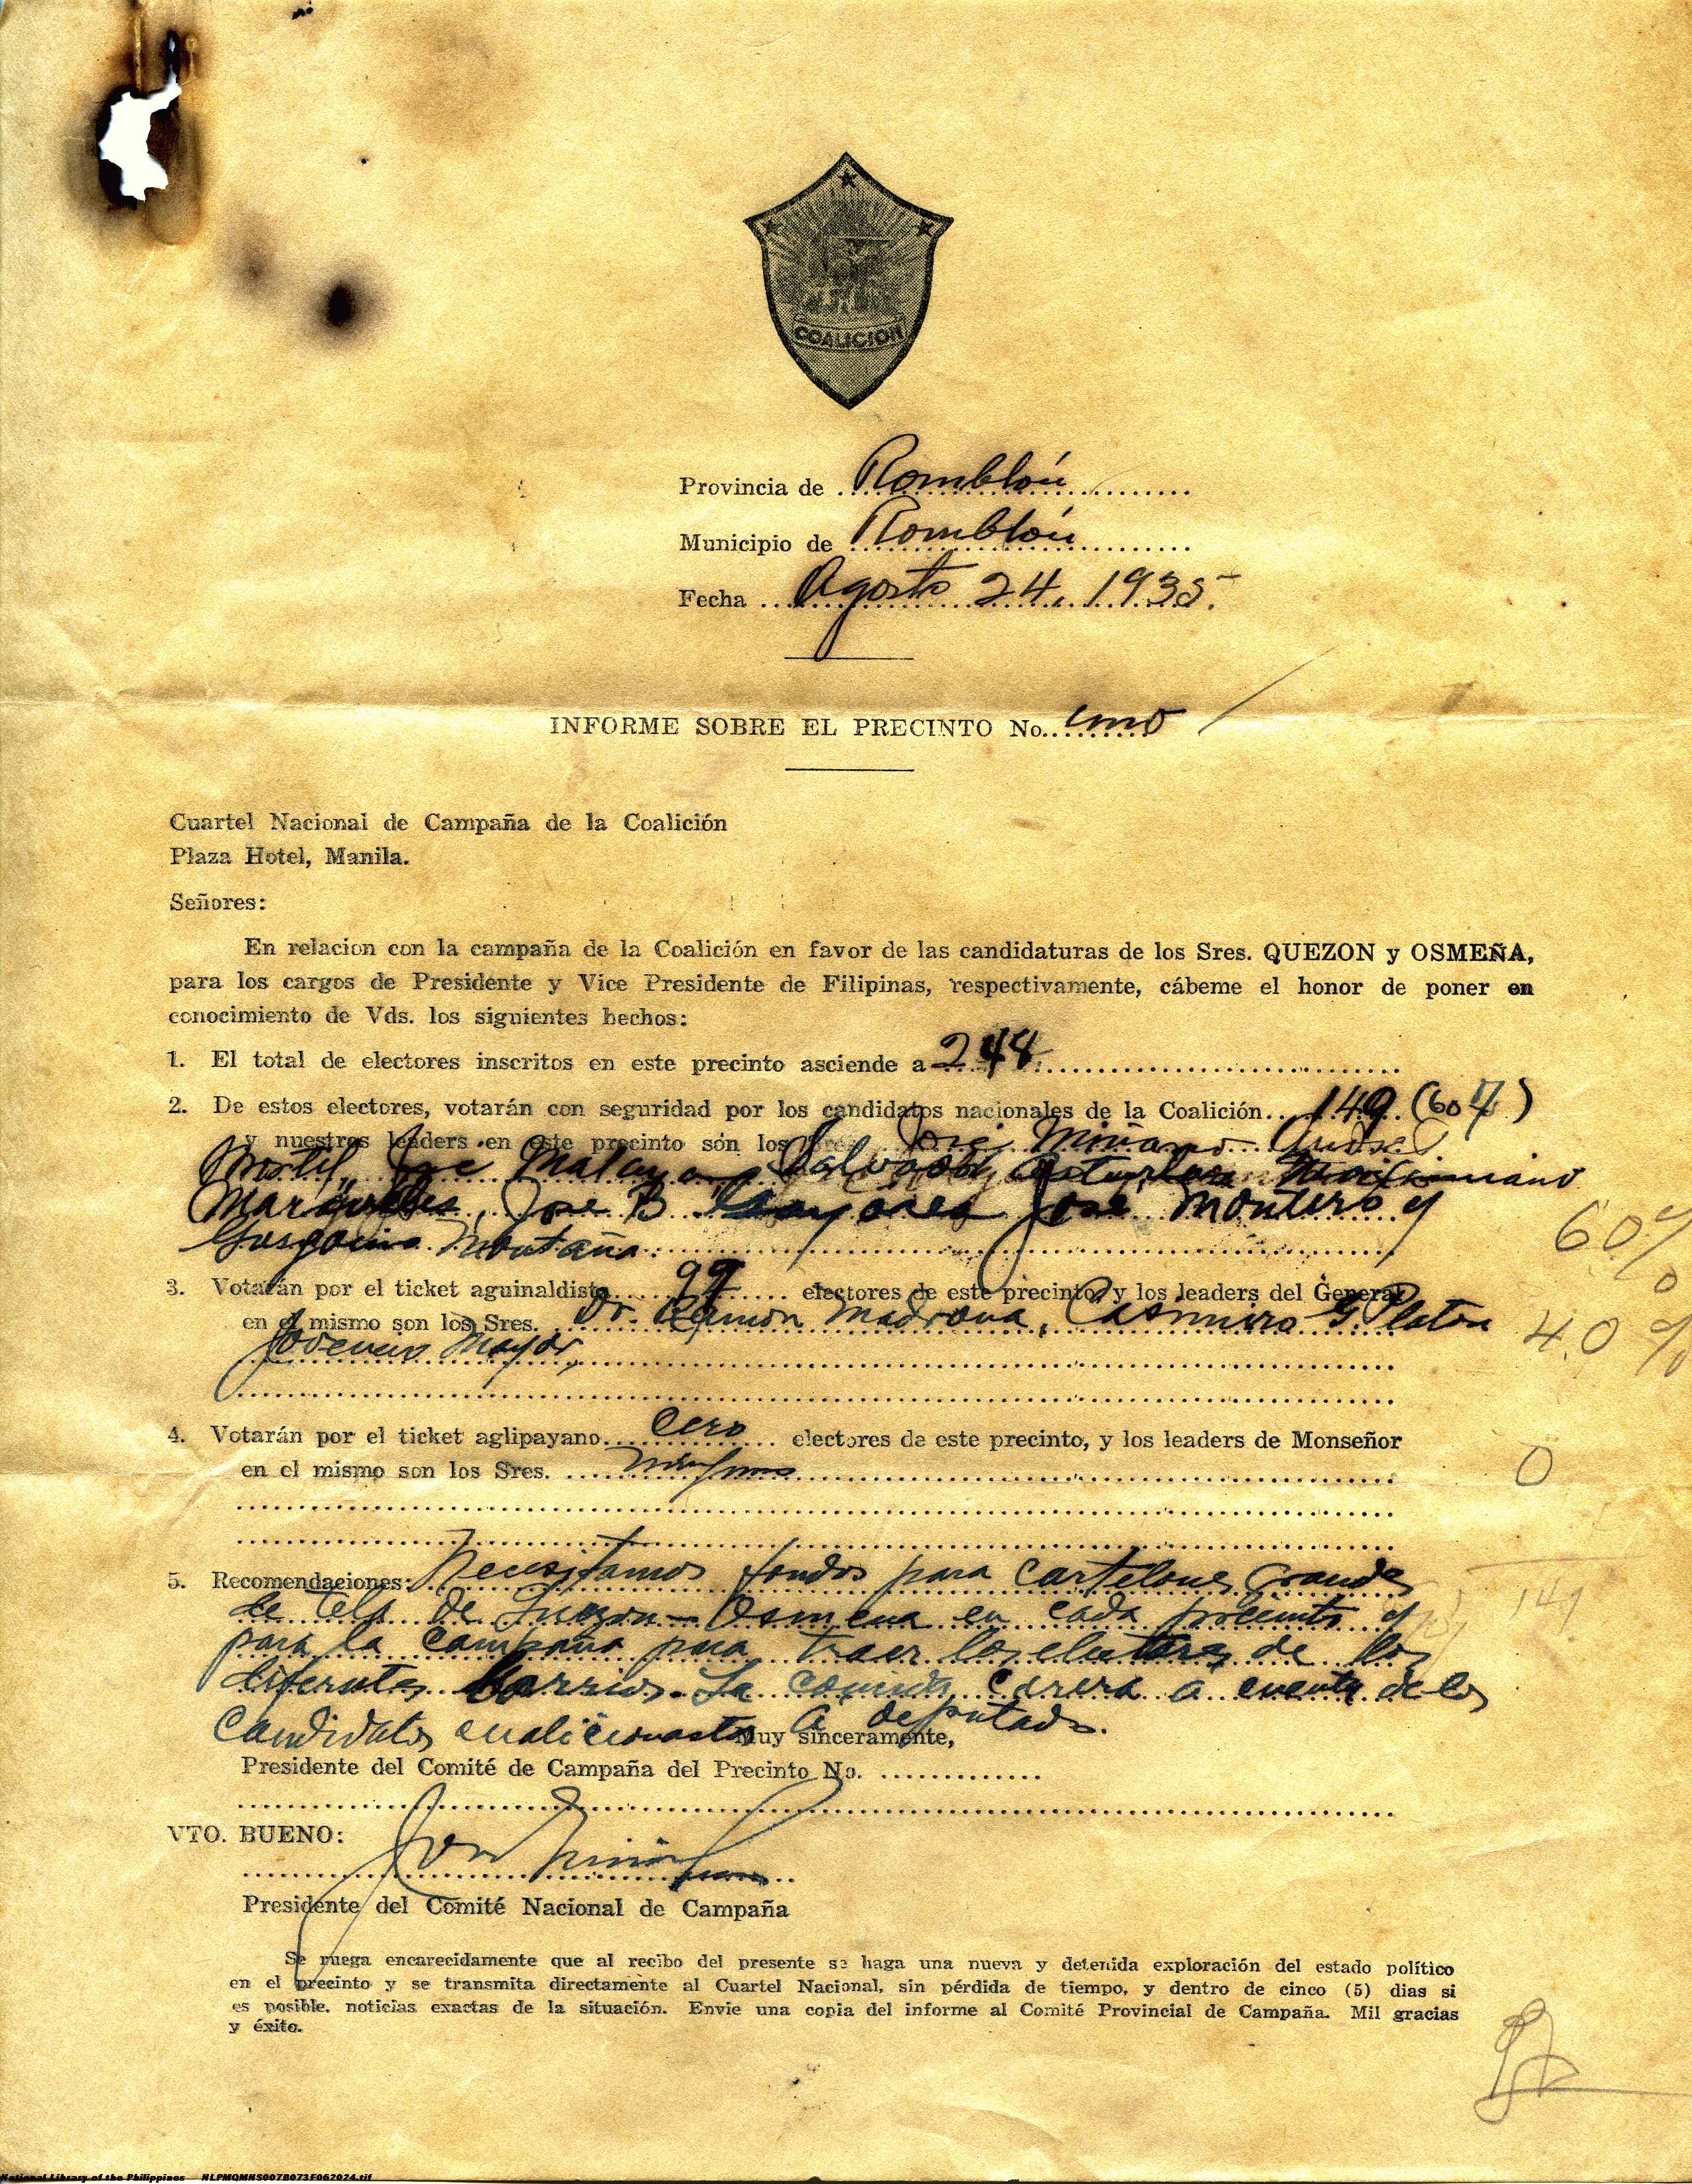 COALICION
Provincia de Romblón
Municipio de Romblón
Fecha Agosto 24, 1935.
INFORME SOBRE EL PRECINTO No. uno
Cuartel Nacional de Campaña de la Coalición
Plaza Hotel, Manila.
Señores:
En relacion con la campaña de la Coalición en favor de las candidaturas de los Sres. QUEZON y OSMEÑA,
para los cargos de Presidente y Vice Presidente de Filipinas, respectivamente, cábeme el honor de poner en
conocimiento de Vds. los siguientes hechos:
1. El total de electores inscritos en este precinto asciende a 248
2. De estos electores, votarán con seguridad por los candidatos nacionales de la Coalición 149 (60%)
y nuestros leaders en este precinto són los José Miñano
Jose Malaya Salvador Maximiano
Jose B. Jose Montero y
Montaña
60%
3. Votarán por el ticket aguinaldista 99 electores de este precinto, y los leaders del General
en el mismo son los Sres. Dr. Ramon Madrona, Casimiro G. Platon
Mayor
40%
4. Votarán por el ticket aglipayano cero electores de este precinto, y los leaders de Monseñor
en el mismo son los Sres. ninguno
0
5. Recomendaciones: Necesitamos fondos para cartelones grandes
de tela de Quezon-Osmena en cada precinto y
149
para la campaña para traer los electores de los
diferentes barrios. La comida correra a cuenta de los
candidatos coalicionistas a deputado.
Muy sinceramente,
Presidente del Comité de Campaña del Precinto No.
VTO. BUENO:
Presidente del Comité Nacional de Campaña
Se ruega encarecidamente que al recibo del presente se haga una nueva y detenida exploración del estado político
en el precinto y se transmita directamente al Cuartel Nacional, sin pérdida de tiempo, y dentro de cinco (5) dias si
es posible, noticias exactas de la situación. Envie una copia del informe al Comité Provincial de Campaña. Mil gracias
y éxito.
National Library of the Philippines NLPMQMNS007B073F062024.tif